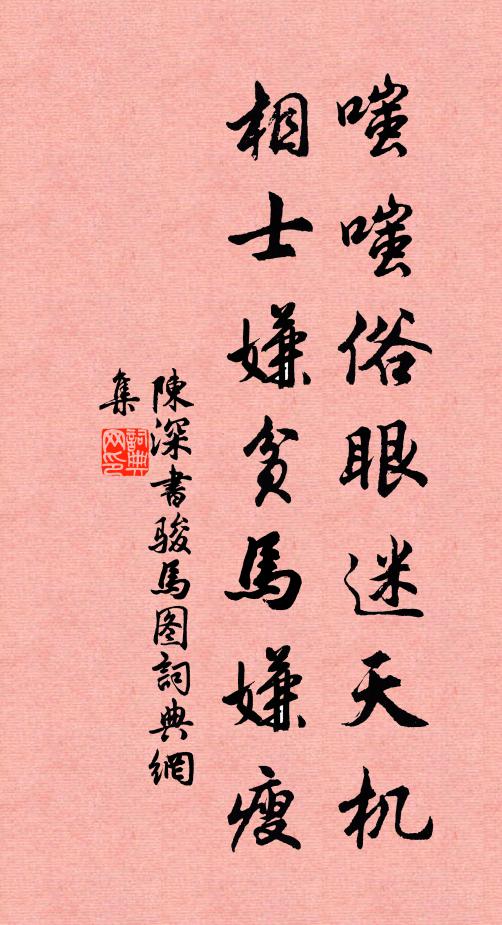 嗤嗤俗眼迷天机
相士嫌貧馬嫌瘦
陳深書骏馬图詞典網
集
詞典
网印